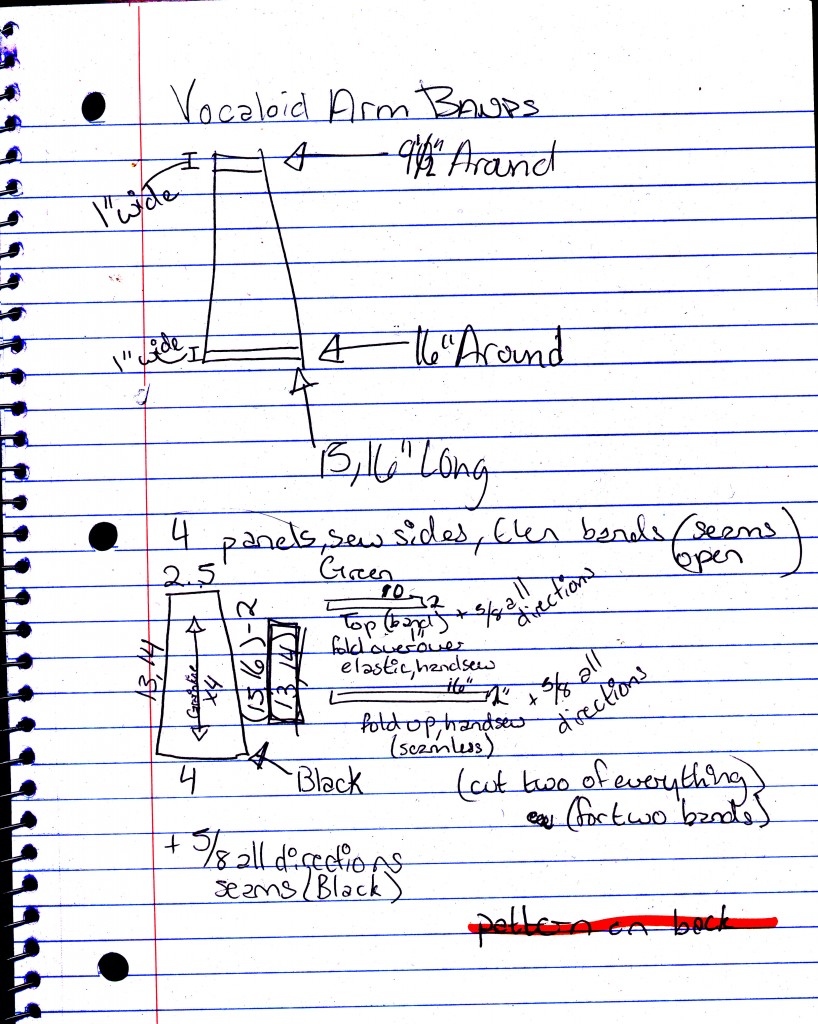 Vocaloid Arm Bands
9 1/2" Around
1" wide
1" wide
16" Around
15,16" Long
4 panels, sew sides, then bands (seams
open)
Green
2.5
10
2
Top (band) + 5/8 all
directions
fold over over
1"
elastic, handsew
13,14
Grainline
x4
(15 16) - 2
13,14
16"
2"
+ 5/8 all
directions
fold up, handsew
(seamless)
4
Black
(cut two of everything)
(for two bands)
+ 5/8 all directions
seams (Black)
pattern on back